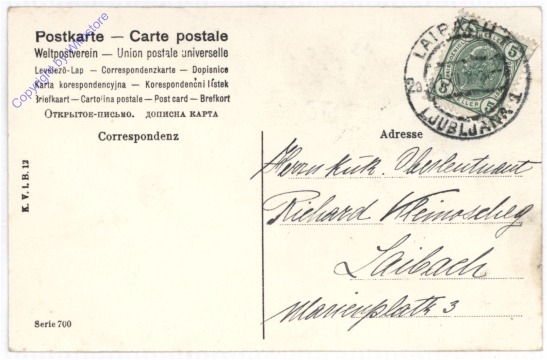 Postkarte — Carte postale
Weltpostverein — Union postale universelle
Levelező-Lap — Correspondenzkarte — Dopisnice
Karta korespondencyjna — Korespondenční lístek
Briefkaart — Cartolina postale — Post card — Brefkort
Открытое-письмо. дописна карта
Copyright by Wikistore
Correspondenz
Adresse
K. V. i. B. 13
LAIBACH
LJUBLJANA
5 5
Herrn kuk. Oberleutnant
Richard Kleinoscheg
Laibach
Marienplatz 3
Serie 700